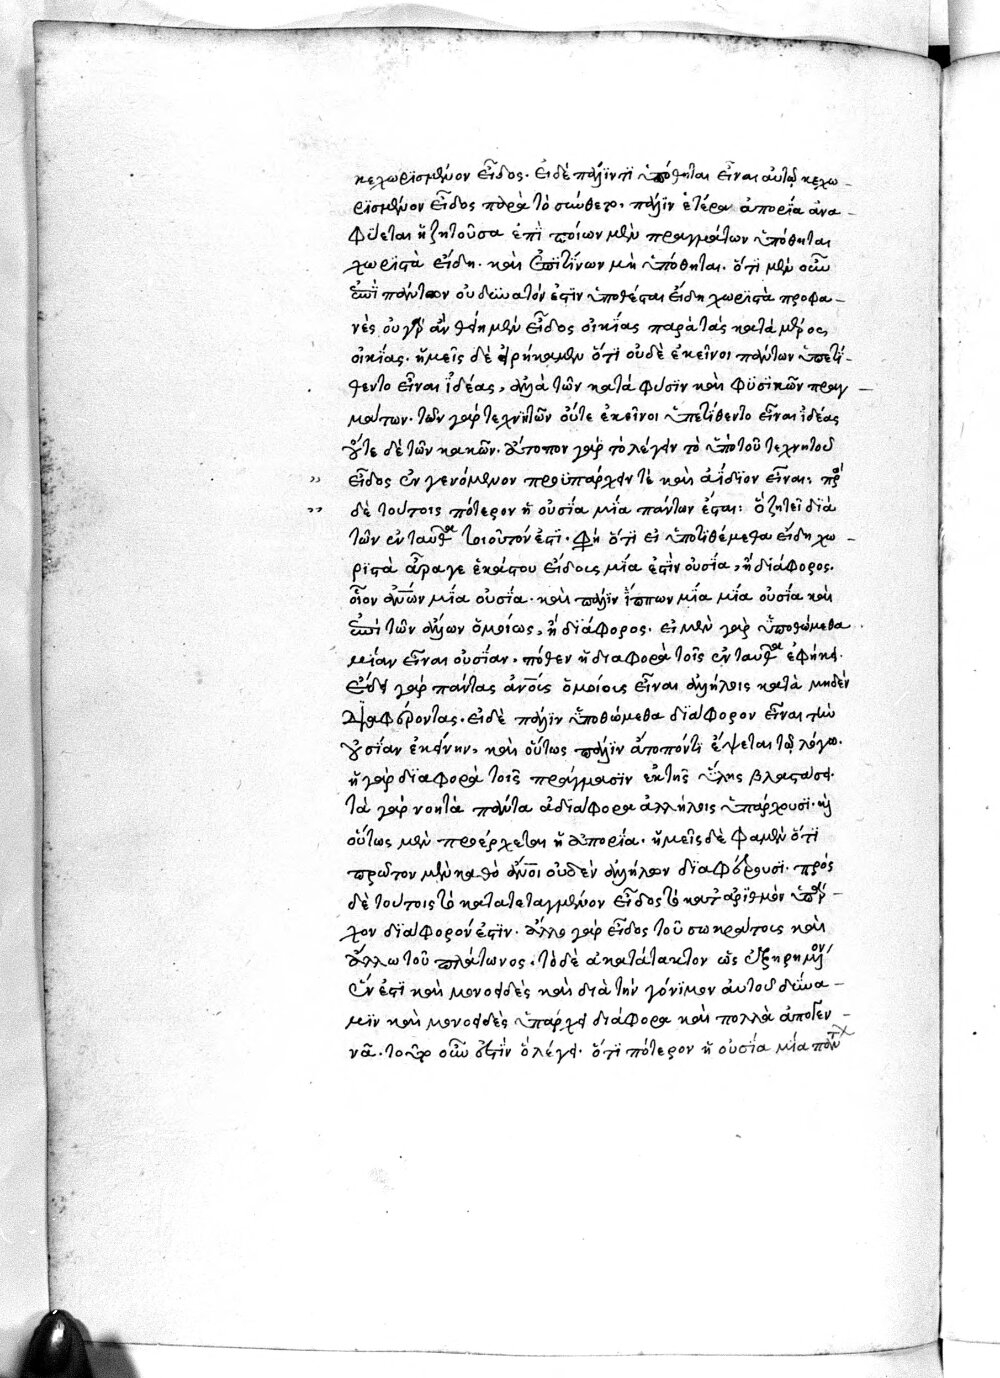 κεχωρισμένον εἶδος. εἰ δὲ πάλιν τί ὑπόθηται εἶναι αὐτῷ κεχω-
ρισμένον εἶδος παρὰ τὸ σύνθετον, πάλιν ἑτέρα ἀπορία ἀνα-
φύεται ἡ ζητοῦσα ἐπὶ ποίων μὲν πραγμάτων ὑπόθηται
χωριστὰ εἴδη. καὶ ἐπὶ τίνων μὴ ὑπόθηται. ὅτι μὲν οὖν
ἐπὶ πάντων οὐ δυνατόν ἐστιν ὑποθέσθαι εἴδη χωριστὰ προφα-
νές οὐ γὰρ ἂν θείημεν εἶδος οἰκίας παρὰ τὰς κατὰ μέρος
οἰκίας. ἡμεῖς δὲ εἰρήκαμεν ὅτι οὐδὲ ἐκεῖνοι πάντων ὑπετί-
θεντο εἶναι ἰδέας, ἀλλὰ τῶν κατὰ φύσιν καὶ φυσικῶν πραγ-
μάτων. τῶν γὰρ τεχνητῶν οὔτε ἐκεῖνοι ὑπετίθεντο εἶναι ἰδέας
οὔτε δὲ τῶν κακῶν. ἄτοπον γὰρ τὸ λέγειν τὸ ὑπὸ τοῦ τεχνητοῦ
εἶδος ἐν γενόμενον προϋπάρχειν τε καὶ ἀΐδιον εἶναι: πρὸς
δὲ τούτοις πότερον ἡ οὐσία μία πάντων ἔσται: ὃ ζητεῖ διὰ
τῶν ἐνταῦθα τοιοῦτόν ἐστι. φησὶ ὅτι εἰ ὑποτιθέμεθα εἴδη χω-
ριστὰ ἆραγε ἑκάστου εἴδους μία ἐστὶν οὐσία, ἢ διάφορος.
οἷον ἀνῶν μία οὐσία. καὶ πάλιν ἵππων μία μία οὐσία καὶ
ἐπὶ τῶν ἄλλων ὁμοίως, ἢ διάφορος. εἰ μὲν γὰρ ὑποθώμεθα
μίαν εἶναι οὐσίαν, πόθεν ἡ διαφορὰ τοῖς ἐνταῦθα ἐφήκει.
ἔδει γὰρ πάντας ἀνους ὁμοίους εἶναι ἀλλήλοις κατὰ μηδὲν
διαφέροντας. εἰ δὲ πάλιν ὑποθώμεθα διάφορον εἶναι τὴν
οὐσίαν ἐκείνην, καὶ οὕτως πάλιν ἄτοπόν τι ἕψεται τῷ λόγῳ.
ἡ γὰρ διαφορὰ τοῖς πράγμασιν ἐκ τῆς ὕλης βλαστάνει.
τὰ γὰρ νοητὰ πάντα ἀδιάφορα ἀλλήλοις ὑπάρχουσι. καὶ
οὕτως μὲν προέρχεται ἡ ἀπορία. ἡμεῖς δὲ φαμὲν ὅτι
πρῶτον μὲν καθὸ ἄνοι οὐδὲν ἀλλήλων διαφέρουσι. πρός
δὲ τούτοις τὸ κατατεταγμένον εἶδος τὸ κατ ἀριθμὸν ὑπάρ-
χον διάφορόν ἐστιν. ἄλλο γὰρ εἶδος τοῦ σωκράτους καὶ
ἄλλω τοῦ πλάτωνος. τὸ δὲ ἀκατάτακτον ὡς ἐξηρημένον
ἕν ἐστι καὶ μονοειδὲς καὶ διὰ τὴν γόνιμον αὐτοῦ δύνα-
μιν καὶ μονοειδὲς ὑπάρχει διάφορα καὶ πολλὰ ἀπογεν-
νᾶ. τοῦτο οὖν ἐστὶν ὃ λέγει. ὅτι πότερον ἡ οὐσία μία πάντων